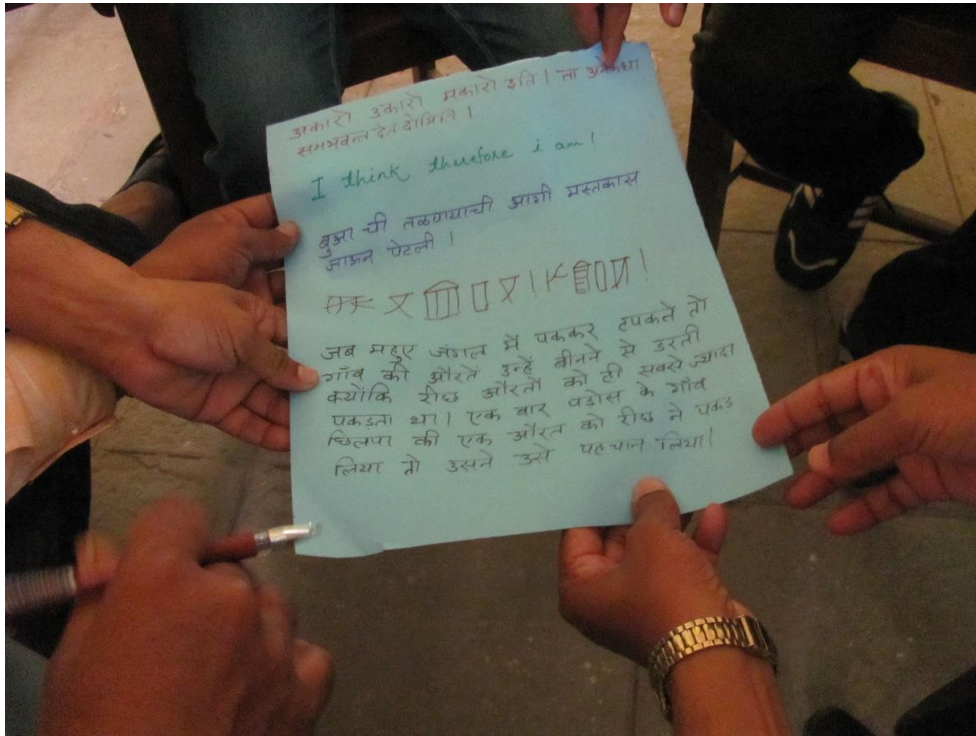 अकारो उकारो मकारो इति। ता अनेकधा
समभवत्त देत दोमिति।
I think therefore i am!
बुआ ची तळपायाची आगी मस्तकास
जाऊन पेटली!
जब महुए जंगल में पककर टपकते तो
गाँव की औरतें उन्हें बीनने से डरती
क्योंकि रीछ औरतों को ही सबसे ज्यादा
पकडता था। एक बार पडोस के गाँव
छिलपा की एक औरत को रीछ ने पकड
लिया तो उसने उसे पहचान लिया।